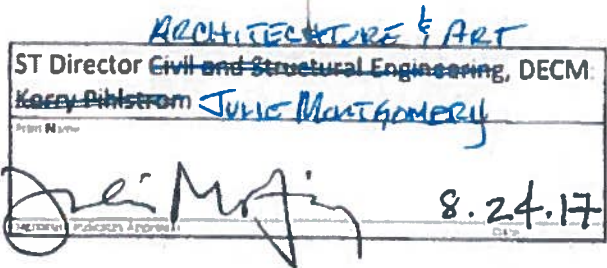 ARCHITECTURE & ART
ST Director Civil and Structural Engineering, DECM
Kerry Pihlstrom JULIE MONTGOMERY
Print Name
8.24.17
Signature Indicates Approval Date